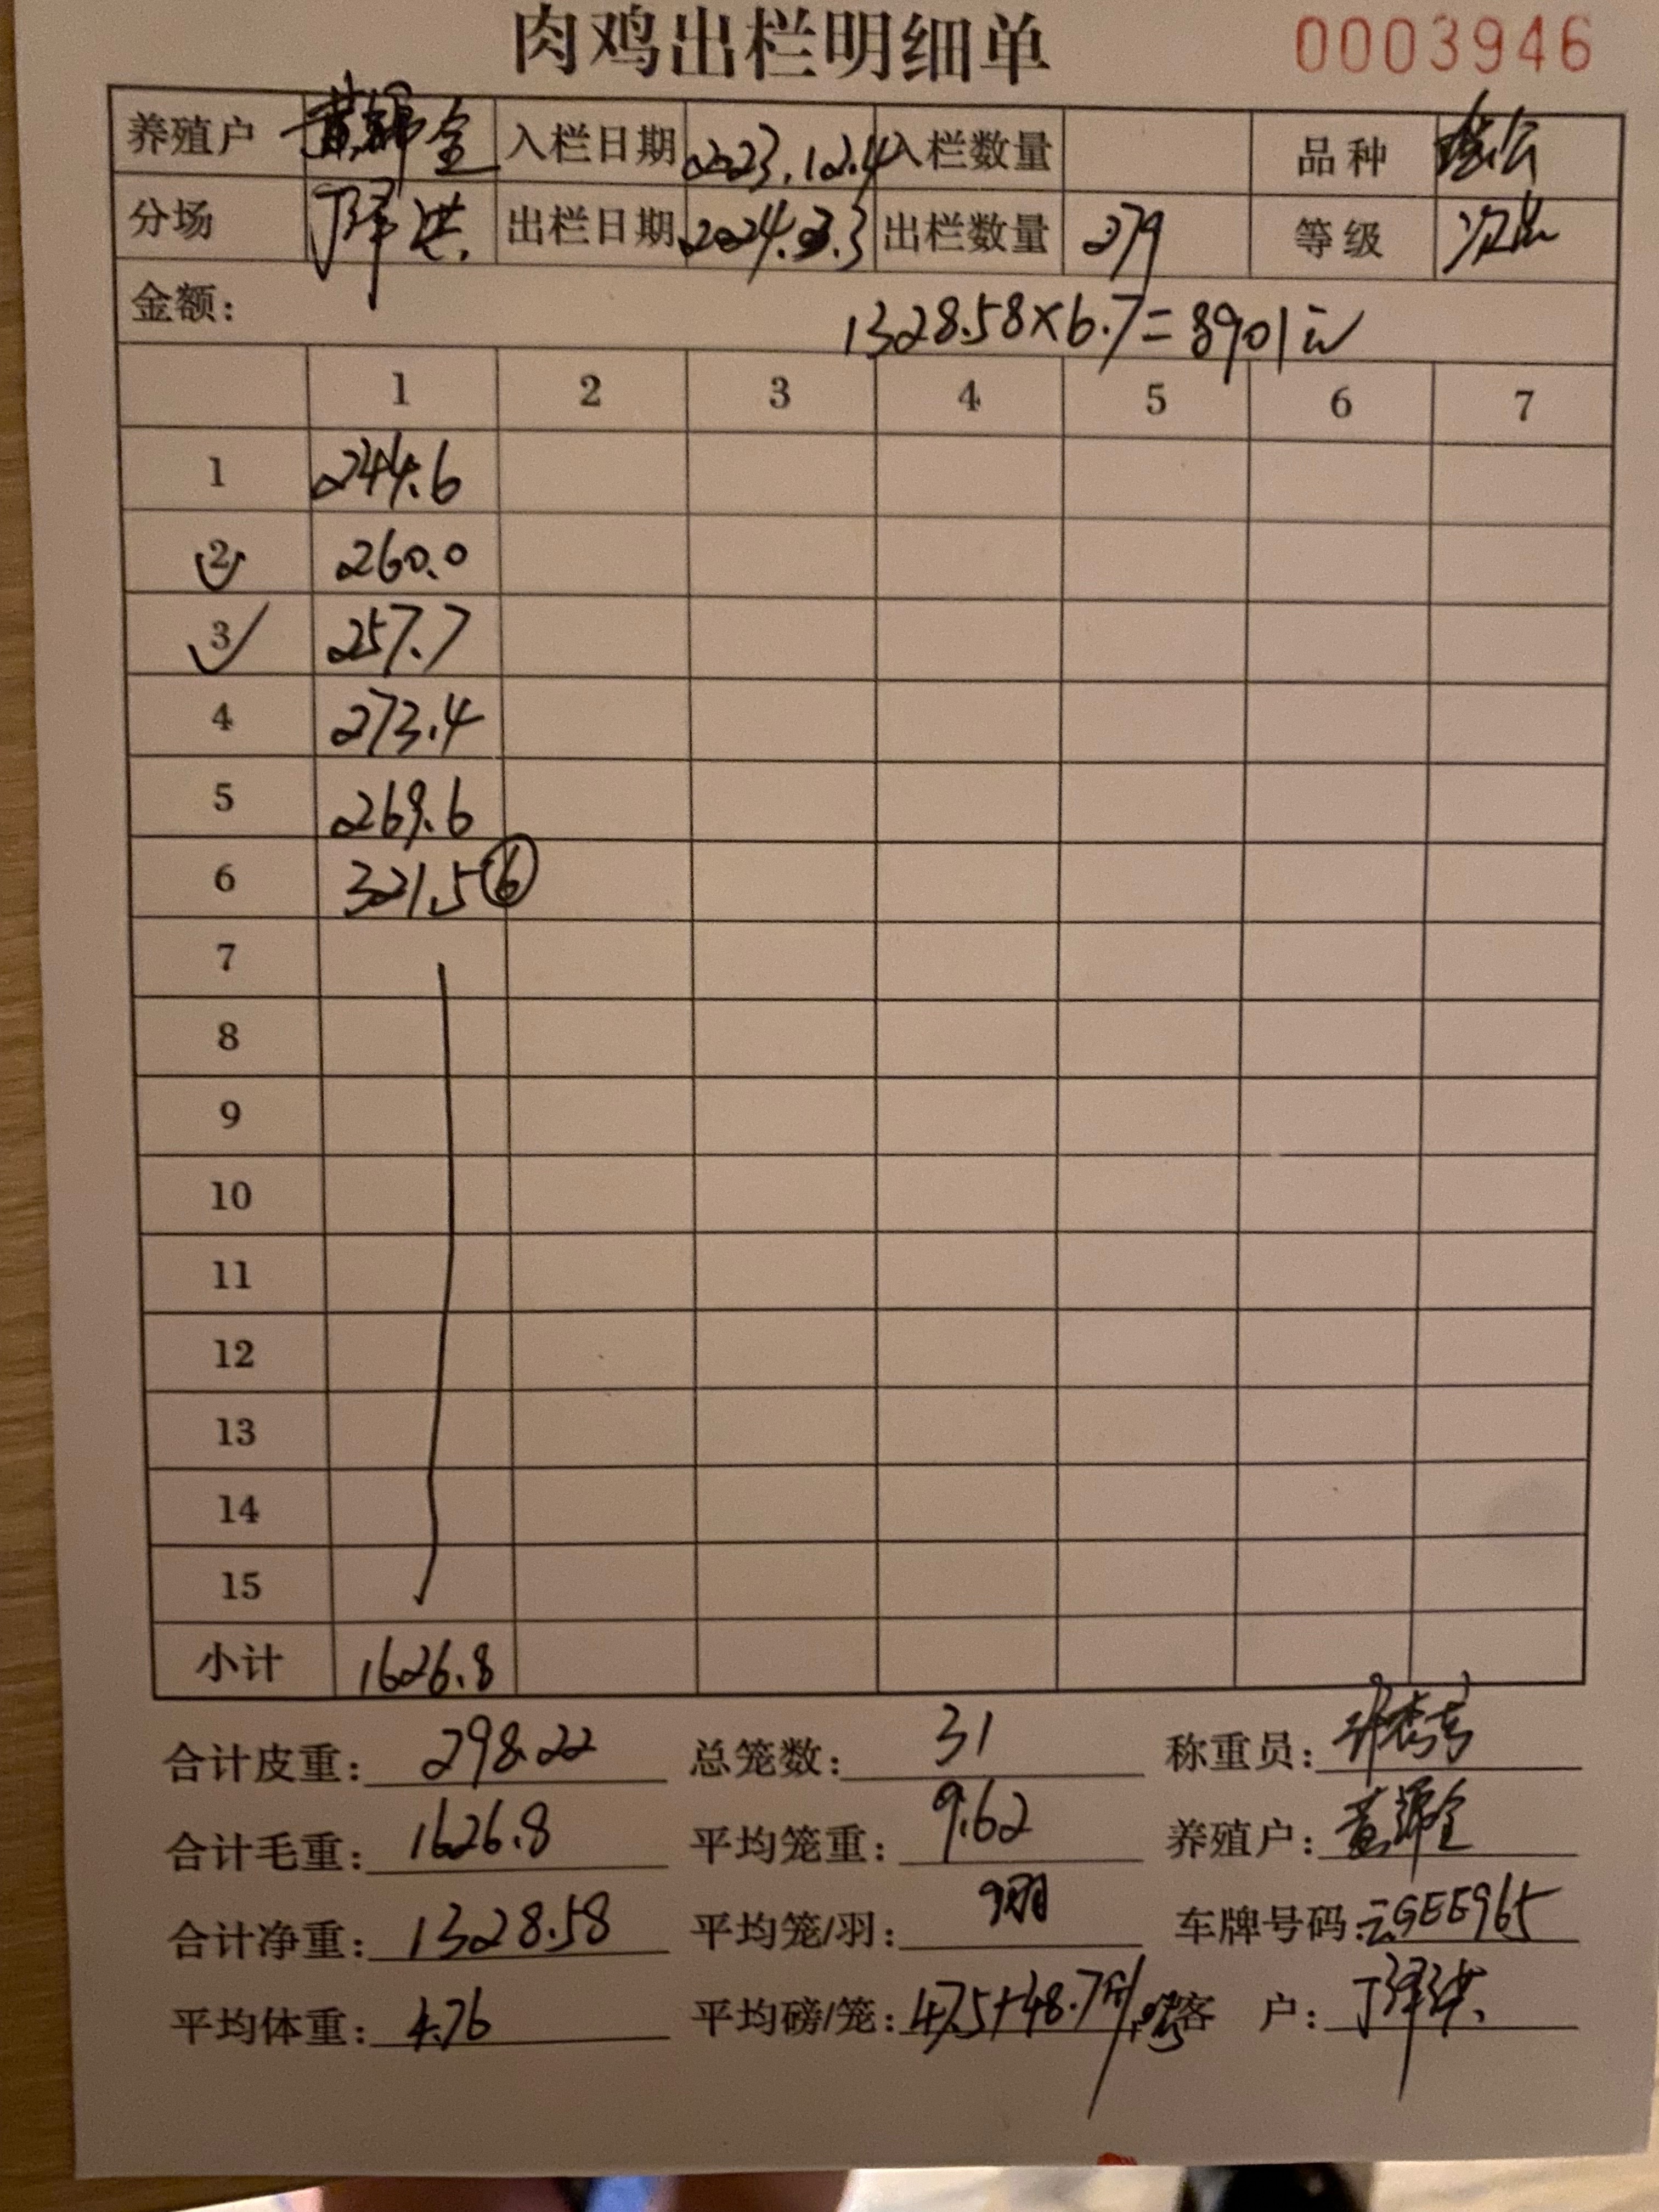 肉鸡出栏明细单 0003946
养殖户 黄锦金 入栏日期 2023.12.4 入栏数量 品种
分场 丁泽洪 出栏日期 2024.3.3 出栏数量 279 等级 次品
金额: 1328.58×6.7=8901元
1 2 3 4 5 6 7
1 244.6
2 260.0
3 257.7
4 273.4
5 269.6
6 321.5 ⑥
7
8
9
10
11
12
13
14
15
小计 1626.8
合计皮重: 298.22 总笼数: 31 称重员:
合计毛重: 1626.8 平均笼重: 9.62 养殖户:
合计净重: 1328.58 平均笼/羽: 9羽 车牌号码: 云GEE965
平均体重: 4.76 平均磅/笼: 47.5+48.7 客户: 丁泽洪